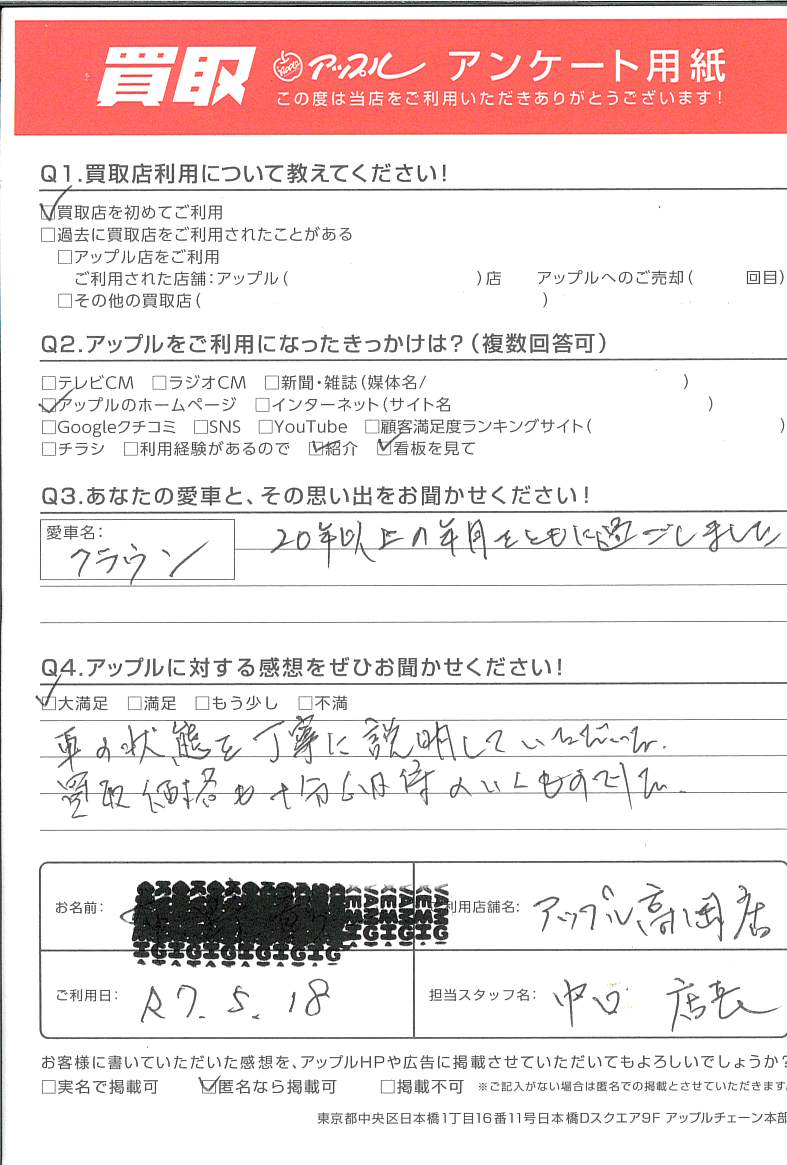 買取 アップル アンケート用紙
この度は当店をご利用いただきありがとうございます!
Q1.買取店利用について教えてください!
☑買取店を初めてご利用
□過去に買取店をご利用されたことがある
□アップル店をご利用
ご利用された店舗:アップル( )店 アップルへのご売却( 回目)
□その他の買取店( )
Q2.アップルをご利用になったきっかけは?(複数回答可)
□テレビCM □ラジオCM □新聞・雑誌(媒体名/ )
☑アップルのホームページ □インターネット(サイト名 )
□Googleクチコミ □SNS □YouTube □顧客満足度ランキングサイト( )
□チラシ □利用経験があるので ☑紹介 ☑看板を見て
Q3.あなたの愛車と、その思い出をお聞かせください!
愛車名:
クラウン
20年以上の年月をともに過ごしました
Q4.アップルに対する感想をぜひお聞かせください!
☑大満足 □満足 □もう少し □不満
車の状態を丁寧に説明していただいた。
買取価格も十分納得のいくものでした。
お名前:
ご利用店舗名: アップル高岡店
ご利用日: R7.5.18
担当スタッフ名: 中口 店長
お客様に書いていただいた感想を、アップルHPや広告に掲載させていただいてもよろしいでしょうか?
□実名で掲載可 ☑匿名なら掲載可 □掲載不可 ※ご記入がない場合は匿名での掲載とさせていただきます。
東京都中央区日本橋1丁目16番11号日本橋Dスクエア9F アップルチェーン本部